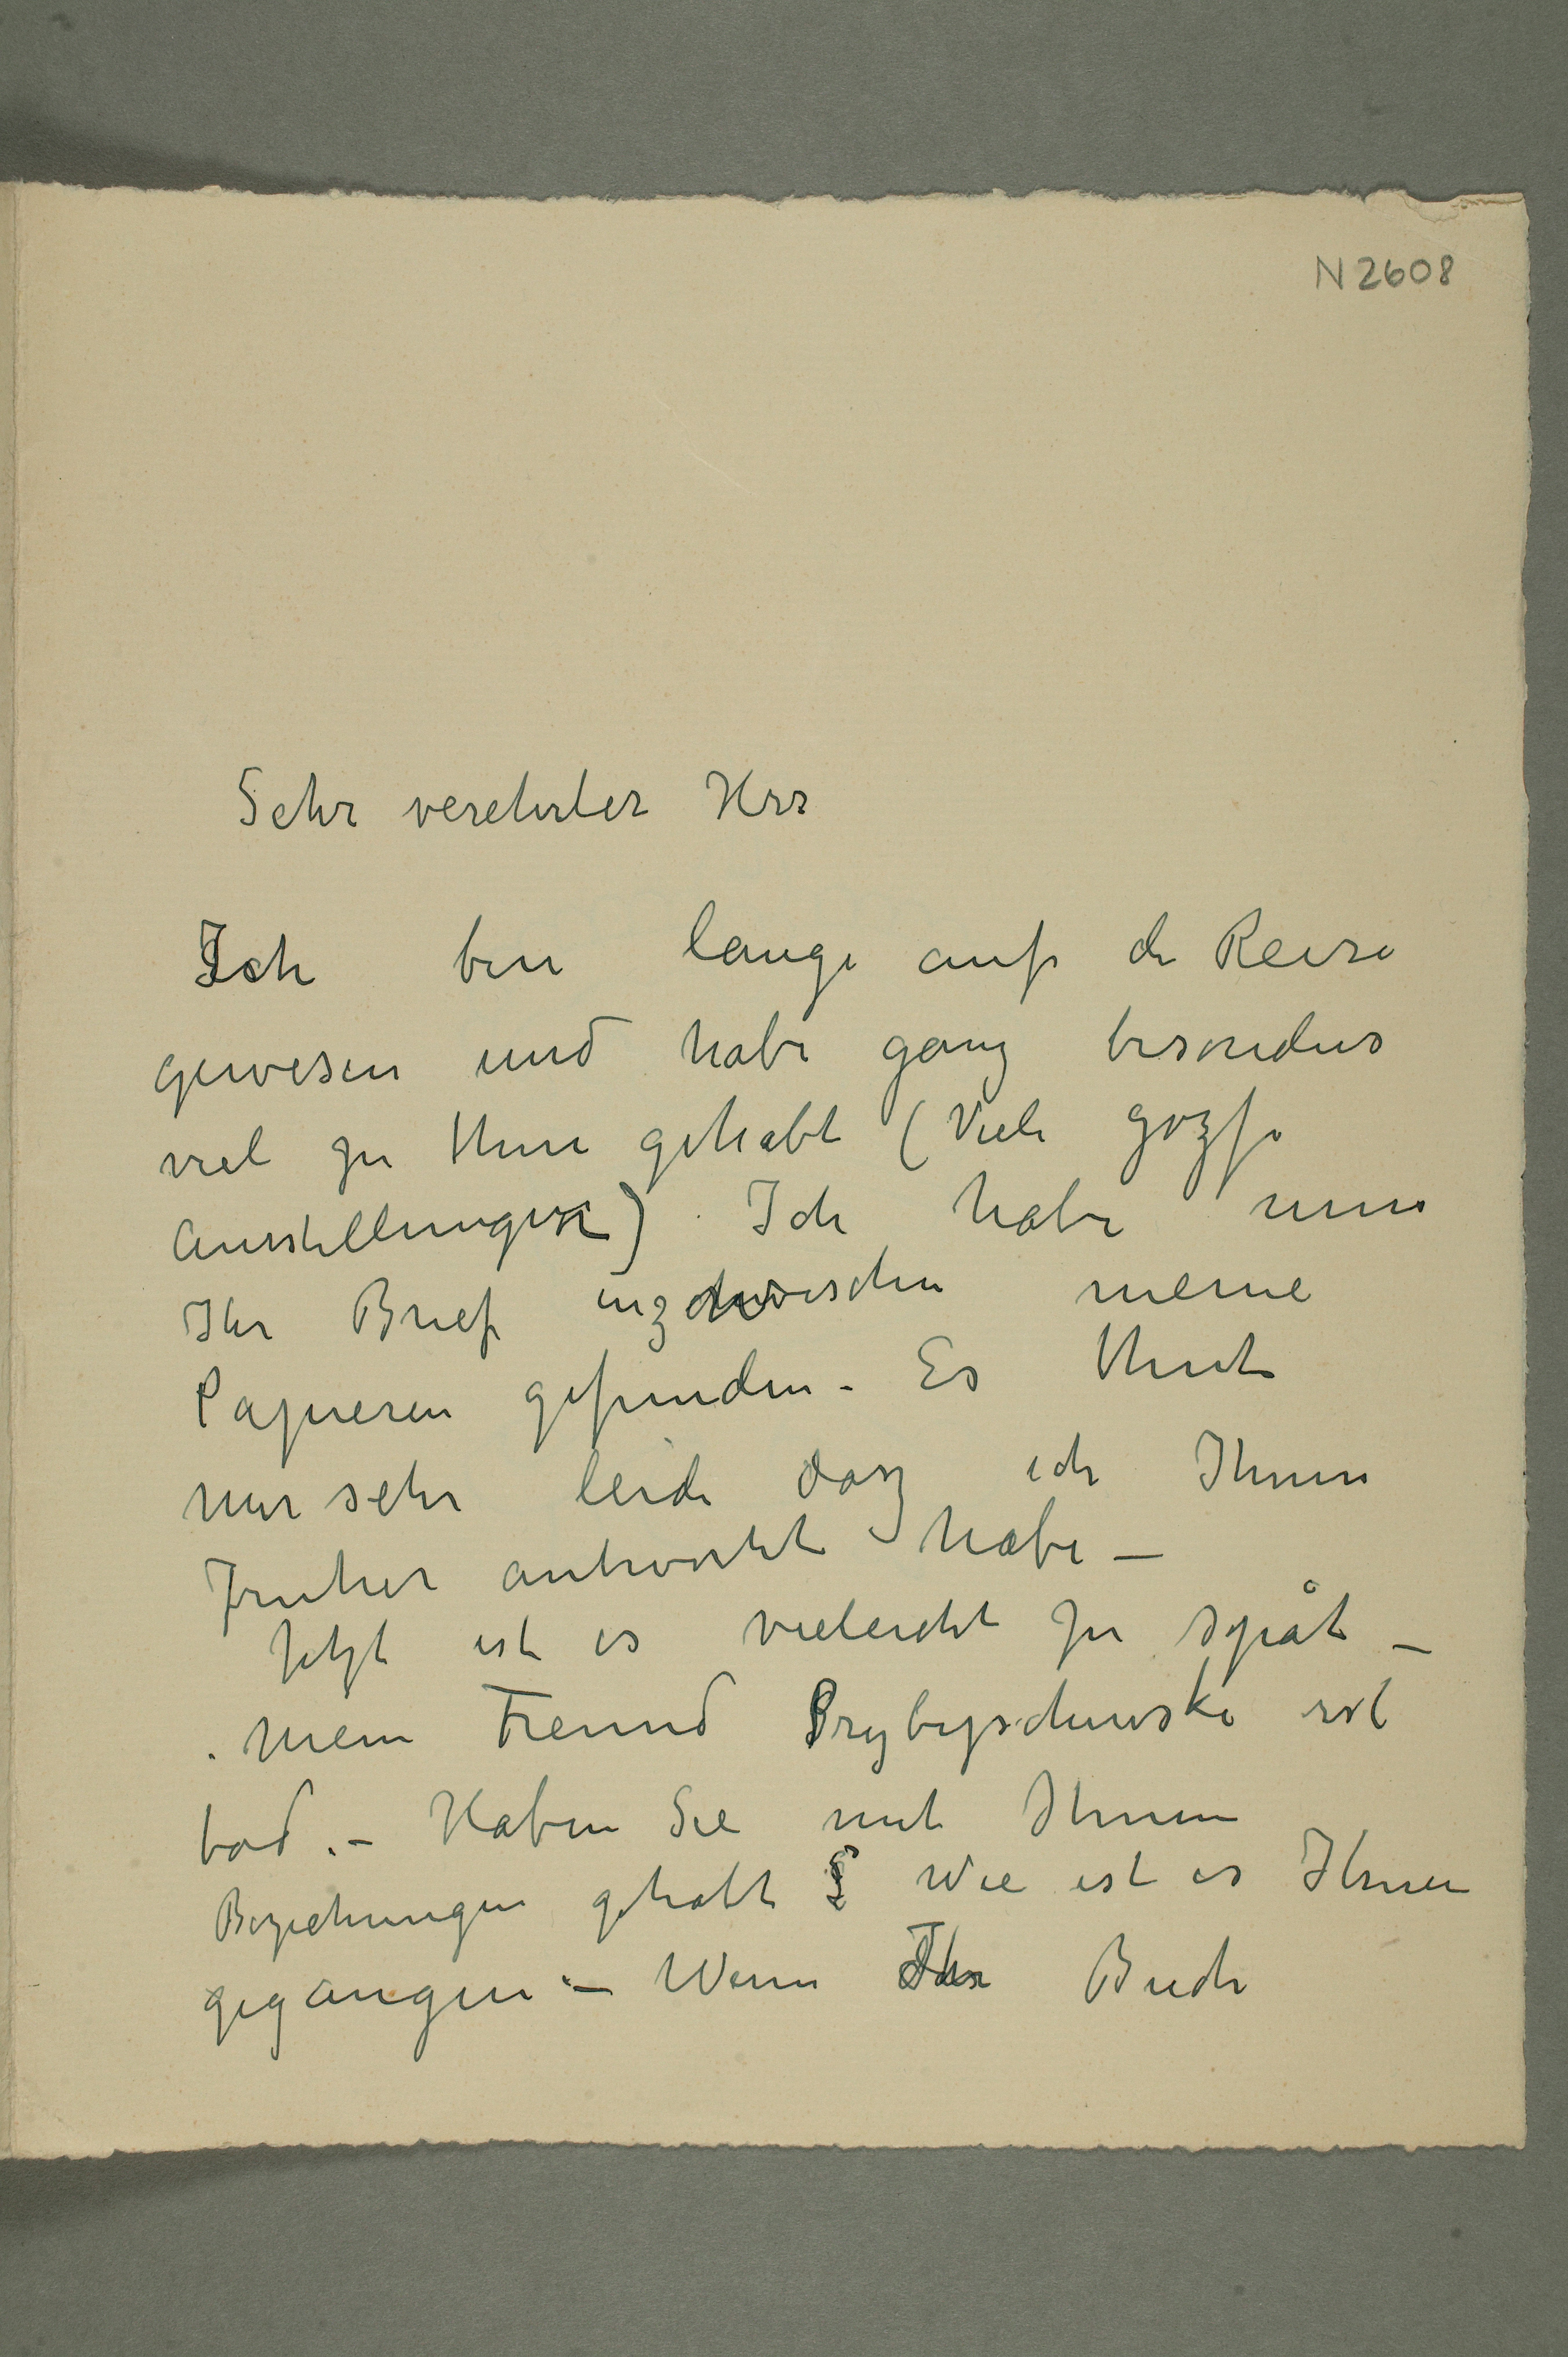 N 2608
Sehr verehrter Hrr
Ich bin lange auf de Reise
gewesen und habe ganz besonders
viel zu thun gehabt (Viele gozse
Ausstellungen) Ich habe nun
Ihr Brief inzwischen meine
Papieren gefunden. Es thut
mir sehr leide dasz ich Ihnen
früher antwortet habe –
Jetzt ist es vieleicht zu spåt –
. Mein Freund Prybyschewski ist
tod. – Haben Sie mit Ihnen
Beziehungen gehabt? Wie ist es Ihnen
gegangen – Wenn Ihr Buch